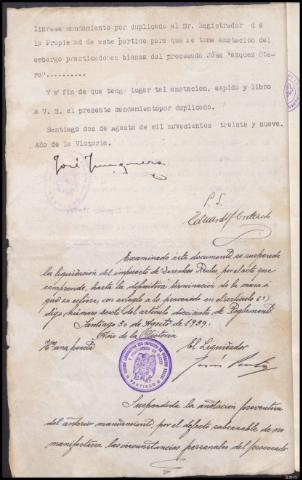 líbrese mandamiento por duplicado al Sr. Registrador de
la Propiedad de este partido para que se tome anotacion del
embargo practicado en bienes del procesado José Vazquez Ote-
ro".........
Y a fin de que tenga lugar tal anotacion, expido y libro
a V. S. el presente mandamiento por duplicado.
Santiago dos de Agosto de mil novecientos treinta y nueve.
Año de la Victoria.
José
P. S.
Eduardo
Examinado este documento se suspende
la liquidación del impuesto de Derechos Reales, por el acto que
comprende, hasta la definitiva terminación de la causa á
que se refiere, con arreglo a lo prevenido en el artículo
numero sexto del articulo del Reglamento
Santiago 30 de Agosto de 1939.
Año de la Victoria
El Liquidador
SANTIAGO
Suspendida la anotación preventiva
del anterior mandamiento, por el defecto subsanable de no
manifestarse las circunstancias personales del procesado